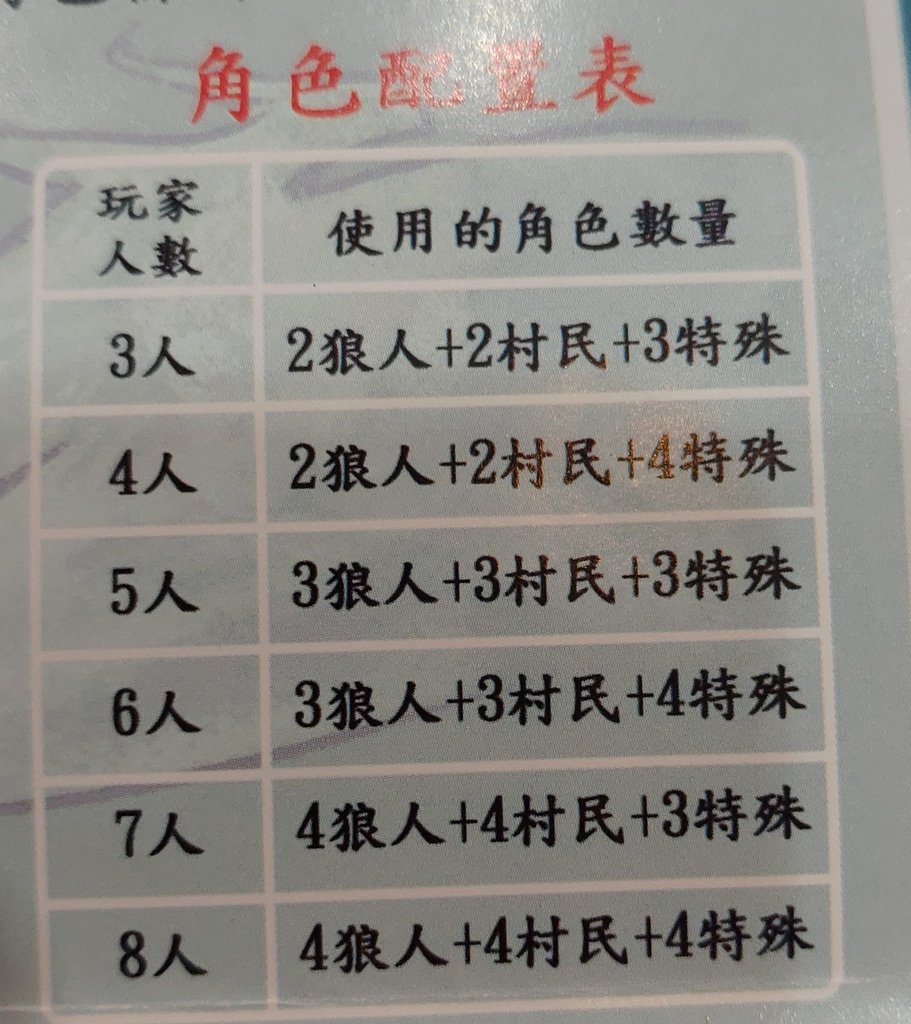 角色配置表
玩家
人數
使用的角色數量
3人 2狼人+2村民+3特殊
4人 2狼人+2村民+4特殊
5人 3狼人+3村民+3特殊
6人 3狼人+3村民+4特殊
7人 4狼人+4村民+3特殊
8人 4狼人+4村民+4特殊